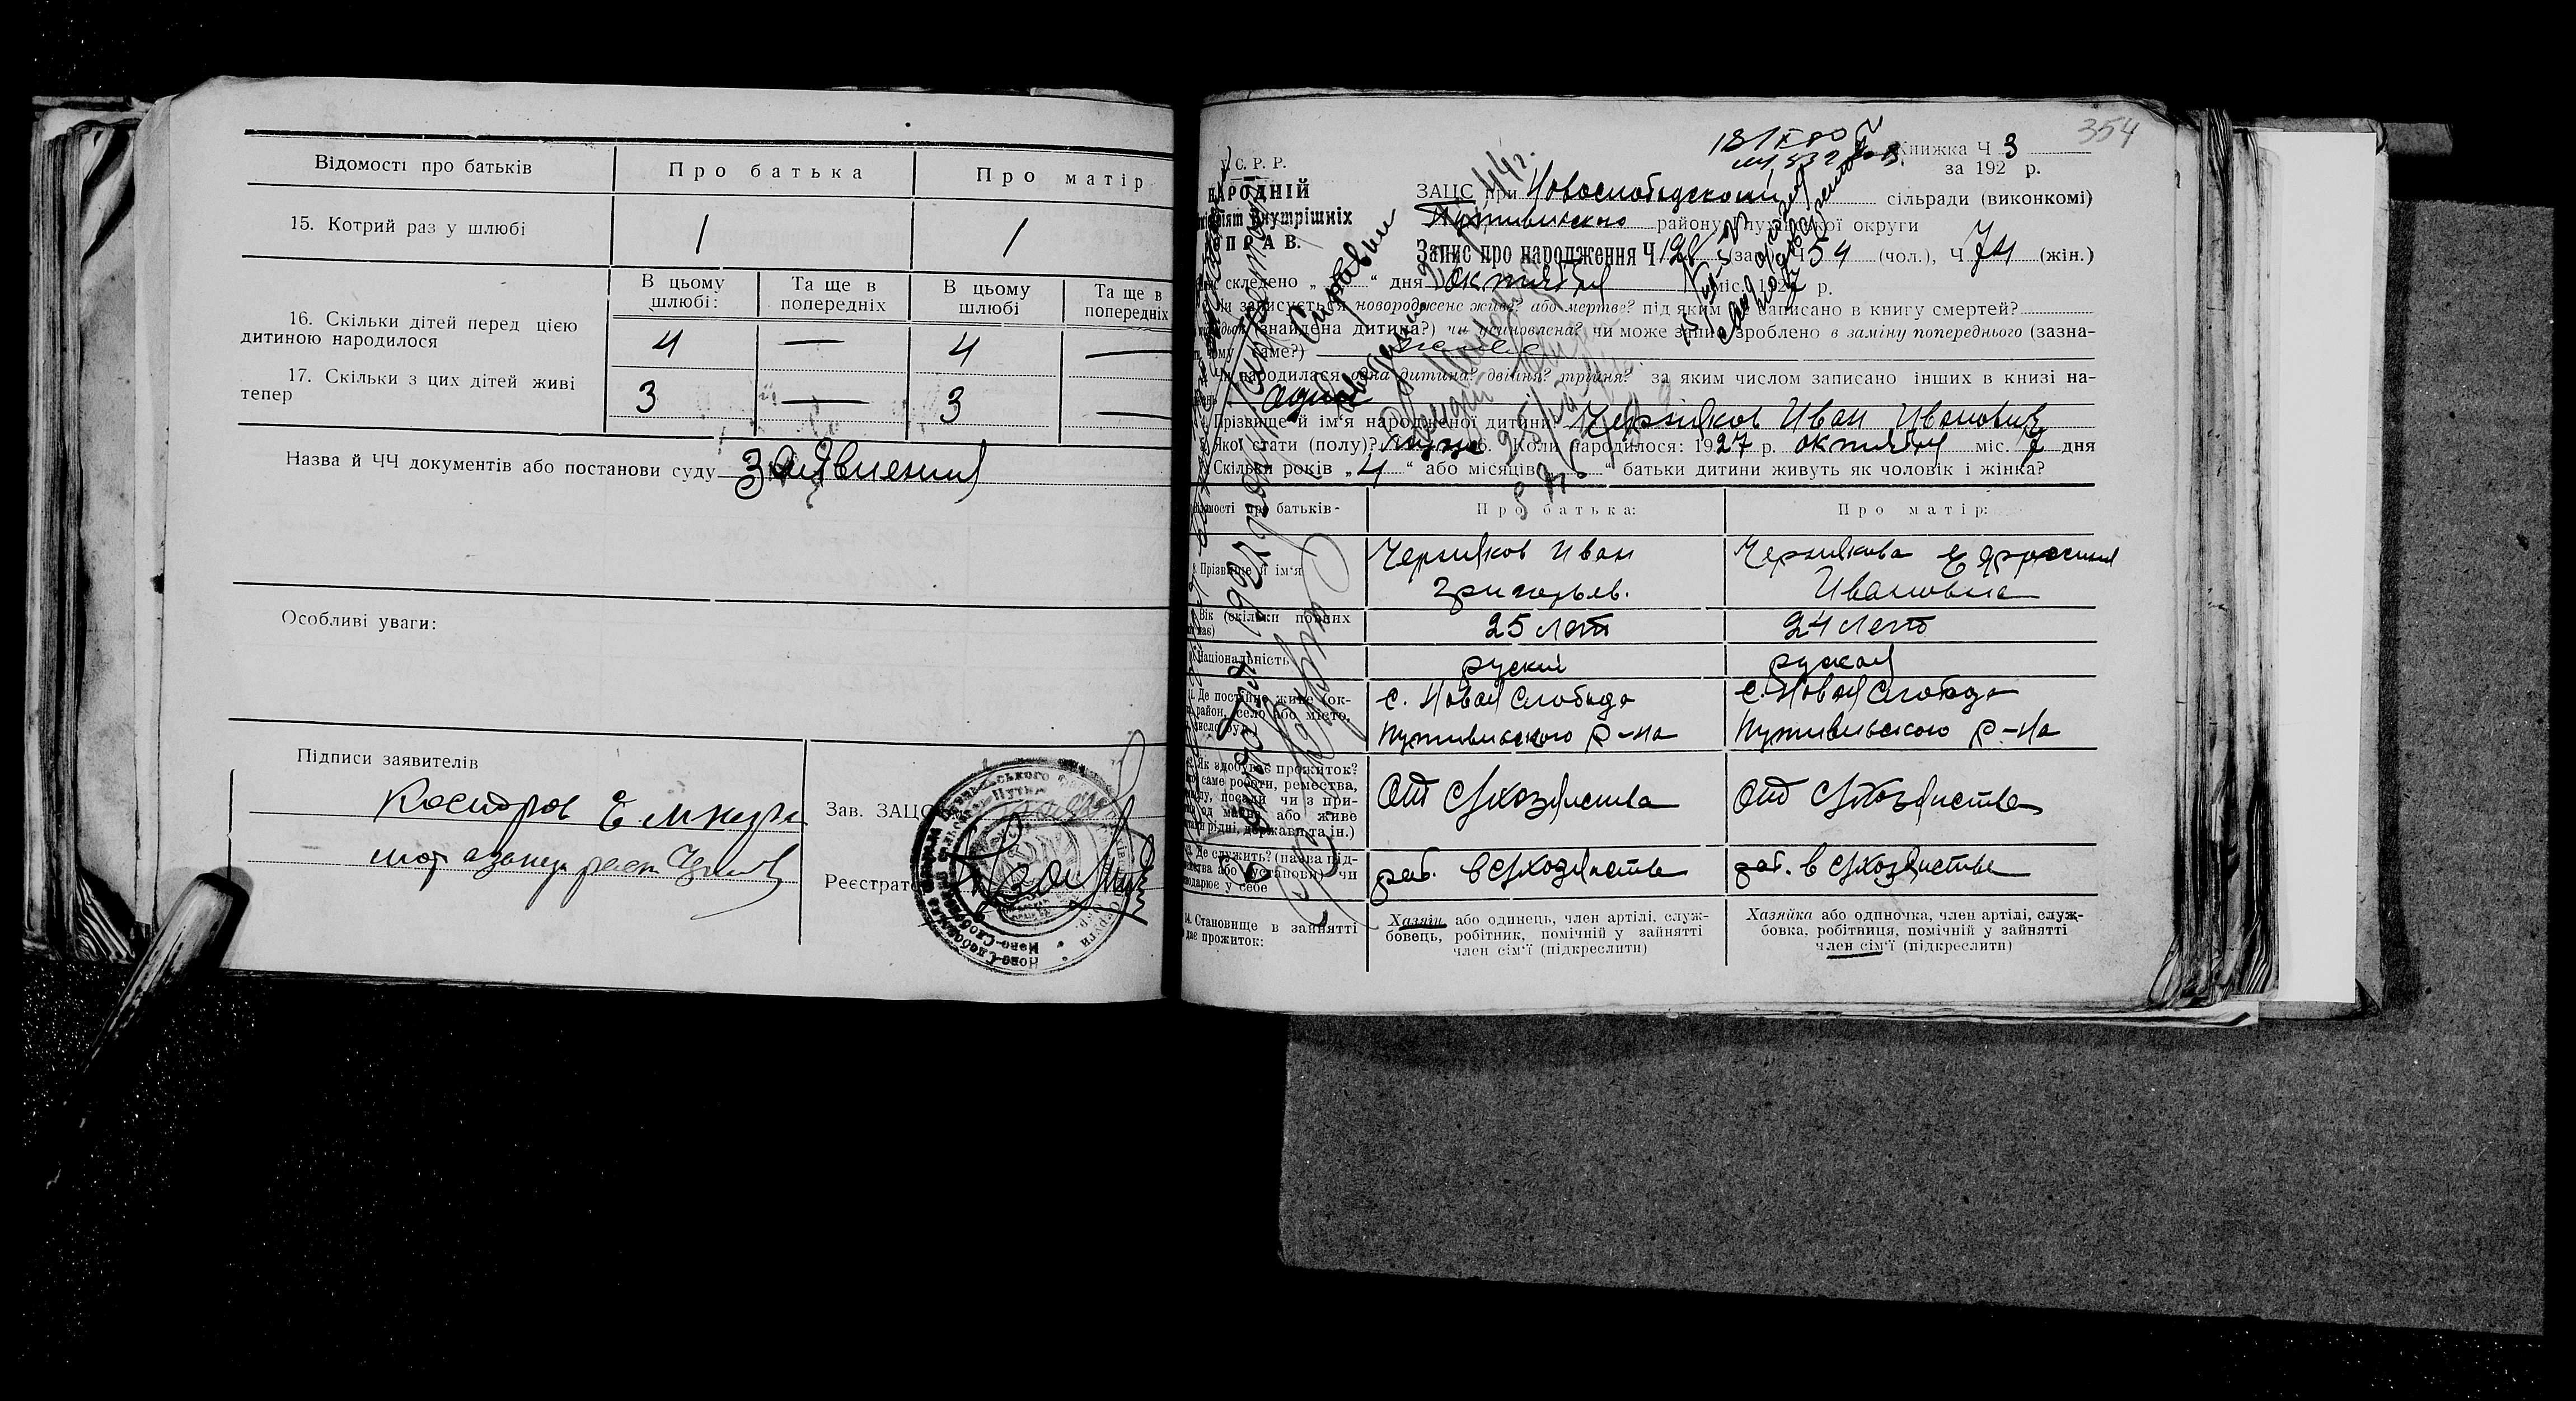 Відомості про батьків
Про батька
Про матір
15. Котрий раз у шлюбі
1
1
В цьому шлюбі:
Та ще в попередніх
В цьому шлюбі
Та ще в попередніх
16. Скільки дітей перед цією
дитиною народилося
4 — 4 —
17. Скільки з цих дітей живі
тепер
3 — 3 —
Назва й ЧЧ документів або постанови суду Заявления
Особливі уваги:
Підписи заявителів
Зав. ЗАЦС
Реєстратор
354
Книжка Ч 3
за 192 р.
У.С.Р.Р.
НАРОДНІЙ
внутрішніх
СПРАВ.
ЗАЦС при Новослободском сільради (виконкомі)
Путивльского району округи
Запис про народження Ч 128 (заг.) Ч 54 (чол.), Ч 74 (жін.)
складено „ “ дня октября міс. 1927 р.
записується новороджене живе? або мертве? під яким Ч записано в книгу смертей?
(знайдена дитина?) чи усиновлена? чи може запис зроблено в заміну попереднього (зазна-
чому саме?)
Чи народилася одна дитина? двійня? трійня? за яким числом записано інших в книзі на-
один
Прізвище й ім'я народженої дитини: Черняков Иван Иванович
5. Якої стати (полу)? муже 6. Коли народилося: 1927 р. октября міс. 7 дня
Скільки років „4“ або місяців „ “ батьки дитини живуть як чоловік і жінка?
Відомості про батьків
Про батька:
Про матір:
8. Прізвище й ім'я
Черняков Иван
Григорьев.
Чернякова Ефросиния
Ивановна
Вік (скільки повних
має)
25 лет
24 лет
Національність
руский
руская
11. Де постійно живе (ок-
район, село або місто,
число буд.)
с. Новая Слобода
Путивльского р-на
с. Новая Слобода
Путивльского р-на
Як здобуває прожиток?
саме роботи, ремества,
посади чи з при-
од майна або живе
рідні, держави та ін.)
От с/хозяиства
От с/хозяиства
Де служить? (назва під-
або установи) чи
господарює у себе
раб. в с/хозяистве
раб. в с/хозяистве
14. Становище в зайнятті
дає прожиток:
Хазяїн або одинець, член артілі, служ-
бовець, робітник, помічній у зайнятті
член сім'ї (підкреслити)
Хазяйка або одиночка, член артілі, служ-
бовка, робітниця, помічній у зайнятті
член сім'ї (підкреслити)